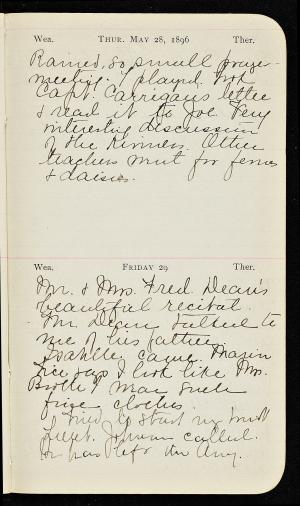 Wea. THUR. MAY 28, 1896 Ther.
Rained, so small prayer-
meeting. I played. Took
Capt. Carrigan's letter
& read it to Joe. Very
interesting discussion
of the Other
teachers went for ferns
& daisies.
Wea. FRIDAY 29 Ther.
Mr. & Mrs. Fred Dean's
beautiful recital.
Mr. Dean talked to
me of his father.
Isabelle came.
says I look like Mrs.
I wear such
fine clothes.
I tried to start my
Lieut. Johnson called.
has left the Army.